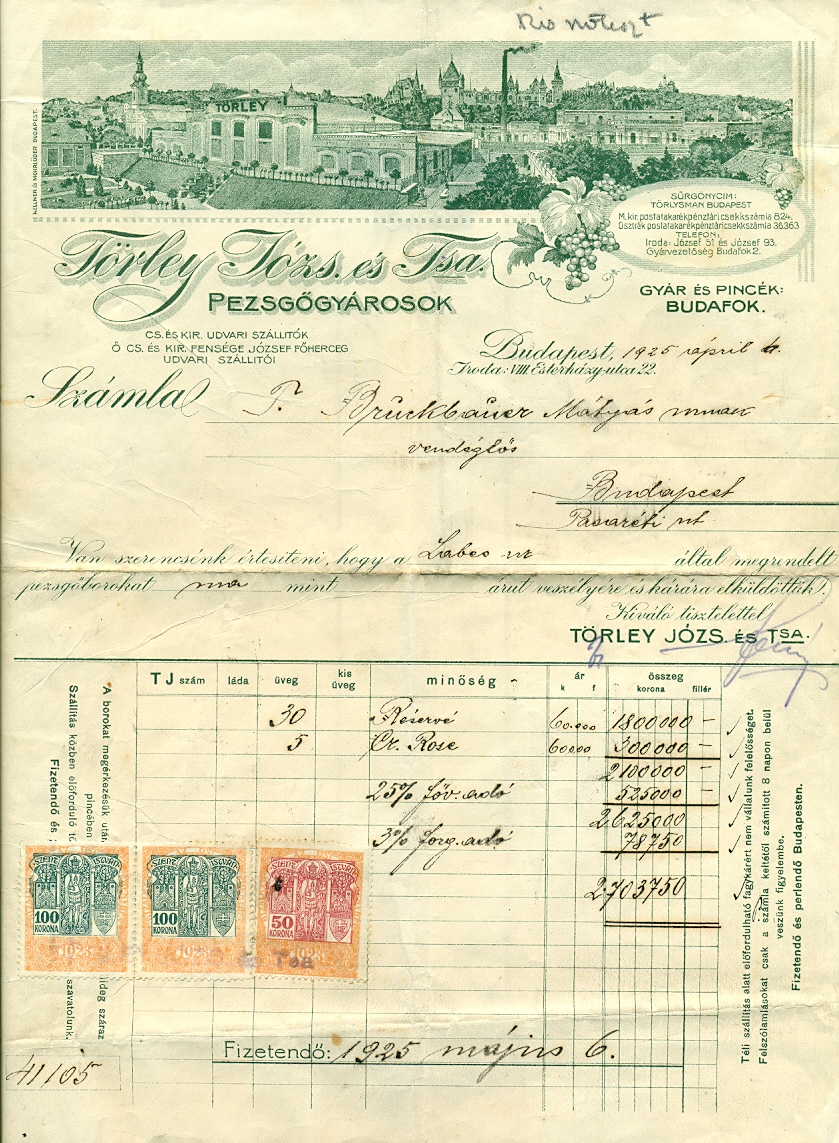 Kis
TÖRLEY
WELLNER ÉS MOHRLÜDER BUDAPEST.
SÜRGÖNYCIM:
TÖRLYSMAN BUDAPEST
M. kir. postatakarékpénztári csekkszámla 824,
Osztrák postatakarékpénztári csekkszámla 36,363
TELEFON:
Iroda: József 51 és József 93.
Gyárvezetőség Budafok 2.
Törley Józs. és Tsa.
PEZSGŐGYÁROSOK
GYÁR ÉS PINCÉK:
BUDAFOK.
CS. ÉS KIR. UDVARI SZÁLLITÓK
Ő CS. ÉS KIR. FENSÉGE JÓZSEF FŐHERCEG
UDVARI SZÁLLITÓI
Budapest, 1925 april 6.
Iroda: VIII. Esterházy-utca 22.
Számla
T. Bruckbauer Mátyás urnak
vendéglős
Budapest
Pasaréti ut
Van szerencsénk értesíteni, hogy a Labec ur által megrendelt
pezsgőborokat ma mint árut veszélyére és kárára elküldöttük.
Kiváló tisztelettel
TÖRLEY JÓZS. ÉS TSA.
TJ szám láda üveg kis üveg minőség ár k f összeg korona fillér
30 Réservé 60.000 1800000 –
5 Cr. Rose 60000 300000 –
2100000 –
25% föv. adó 525000 –
2625000
3% forg. adó 78750
2703750
A borokat megérkezésük után
pincében
Szállitás közben előforduló
Fizetendő és
hideg száraz
szavatolunk.
Téli szállitás alatt előfordulható fagykárért nem vállalunk felelősséget.
Felszólamlásokat csak a számla keltétől számitott 8 napon belül
veszünk figyelembe.
Fizetendő és perlendő Budapesten.
SZENT ISTVÁN
100
KORONA
1923
SZENT ISTVÁN
100
KORONA
1923
SZENT ISTVÁN
50
KORONA
1923
és Tsa
Fizetendő: 1925 május 6.
41105